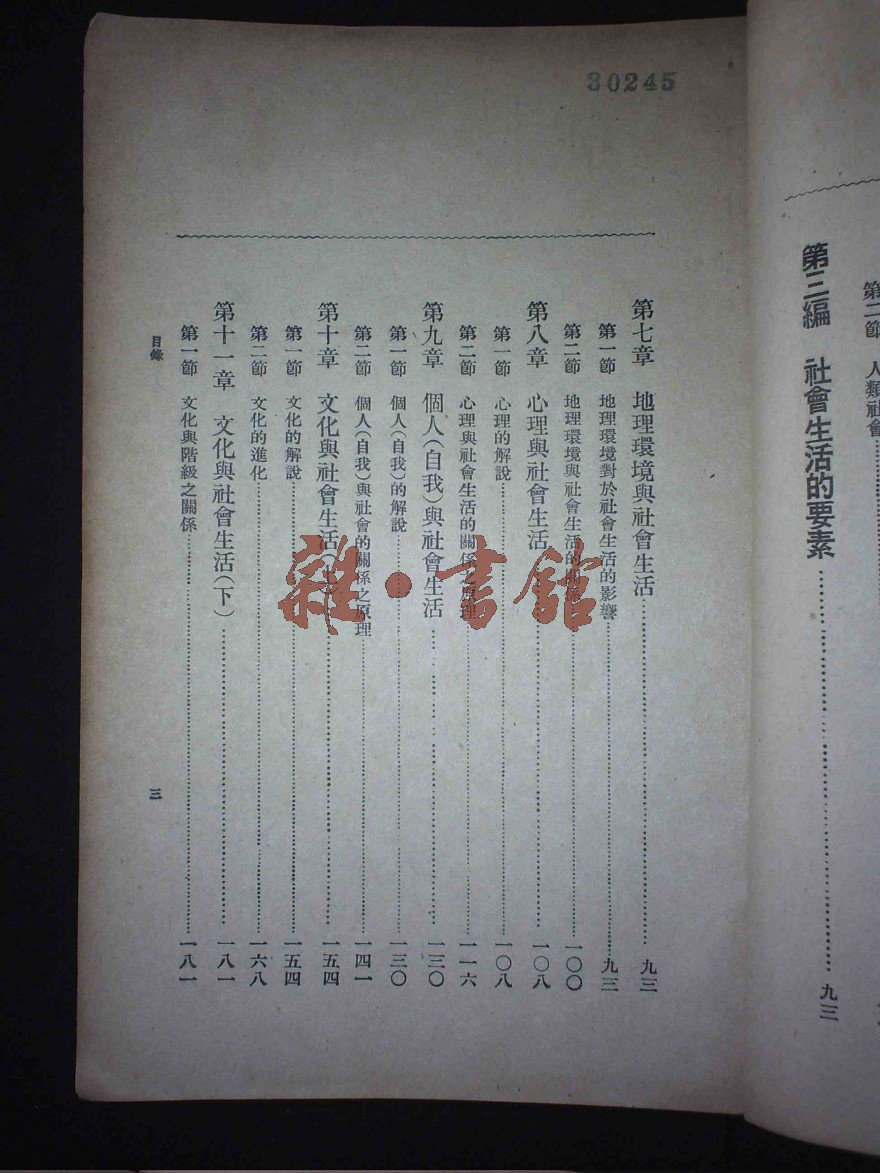 第二節 人類社會
第三編 社會生活的要素 九三
30245
第七章 地理環境與社會生活 九三
第一節 地理環境對於社會生活的影響 九三
第二節 地理環境與社會生活的關係 一〇〇
第八章 心理與社會生活 一〇八
第一節 心理的解說 一〇八
第二節 心理與社會生活的關係之原理 一一六
第九章 個人(自我)與社會生活 一三〇
第一節 個人(自我)的解說 一三〇
第二節 個人(自我)與社會的關係之原理 一四一
第十章 文化與社會生活(上) 一五四
第一節 文化的解說 一五四
第二節 文化的進化 一六八
第十一章 文化與社會生活(下) 一八一
第一節 文化與階級之關係 一八一
目錄 三
雜·書館